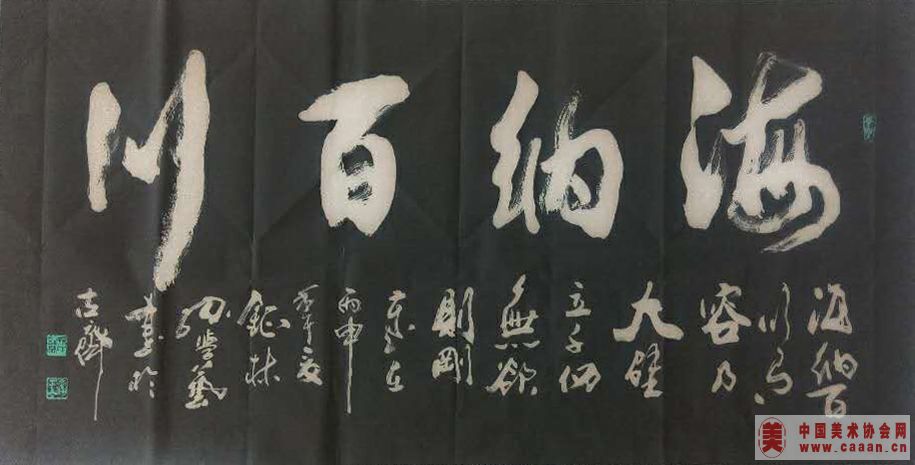 海納百川
海納百
川有
容乃
大壁
立千仞
無欲
則剛
歲在
丙申
年夏
林
藝
書於
古
美 中国美术协会网
www.caaan.cn